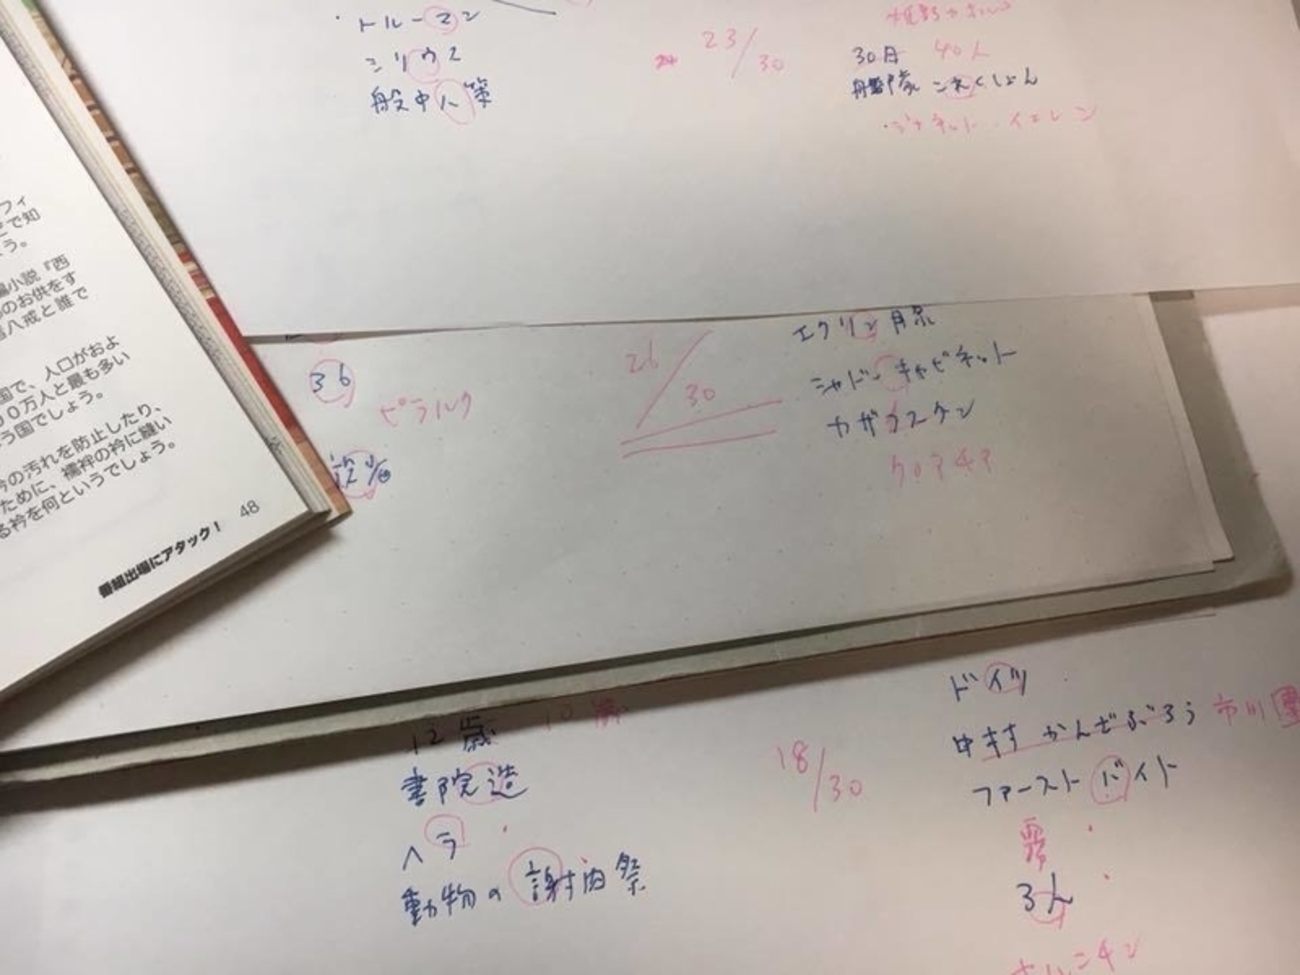 トルーマン
シリウス
船中八策
23/30
30日 40人
艦隊これくしょん
ジャネット・イエレン
フィ
で知
う。
編小説『西
のお供をす
者八戒と誰で
国で、人口がおよ
00万人と最も多い
う国でしょう。
今の汚れを防止したり、
ために、襦袢の衿に縫い
る衿を何というでしょう。
番組出場にアタック! 48
36
ピラルク
26/30
エクリン
シャドーキャビネット
カザフスタン
クロアチア
12歳 10歳
書院造
ヘラ
動物の謝肉祭
18/30
ドイツ
中村かんざぶろう 市川團
ファーストバイト
霧
3人